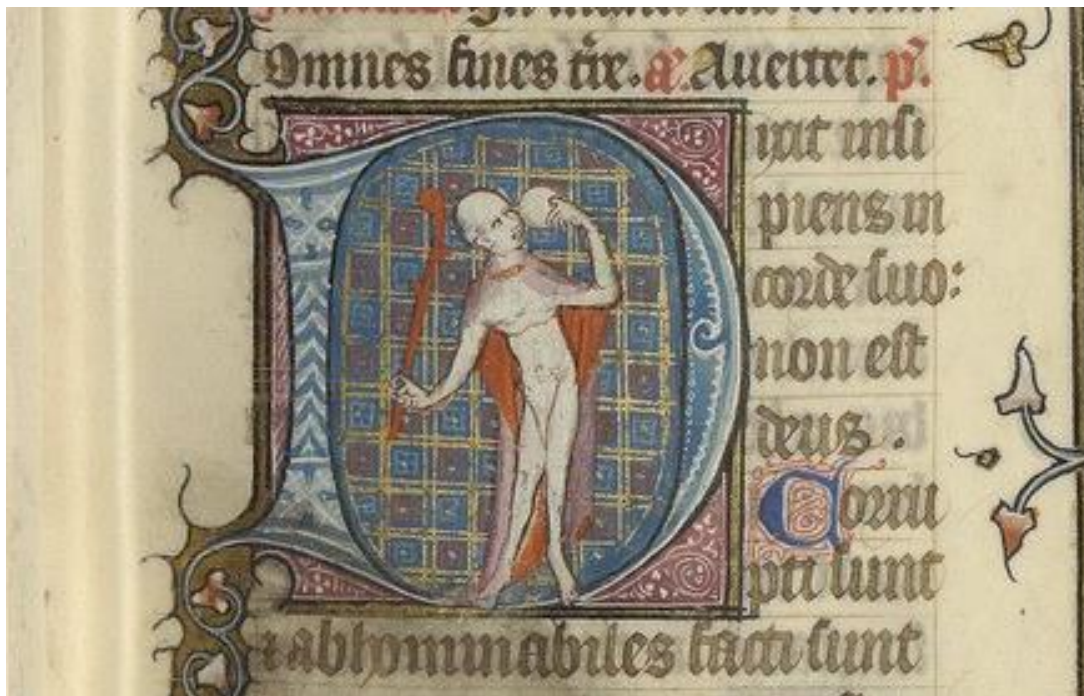 Omnes fines t̄re. æ. Auertet. p̄.
Dixit insi
piens in
corde suo:
non est
deus.
Corru
pti sunt
⁊ abhominabiles facti sunt